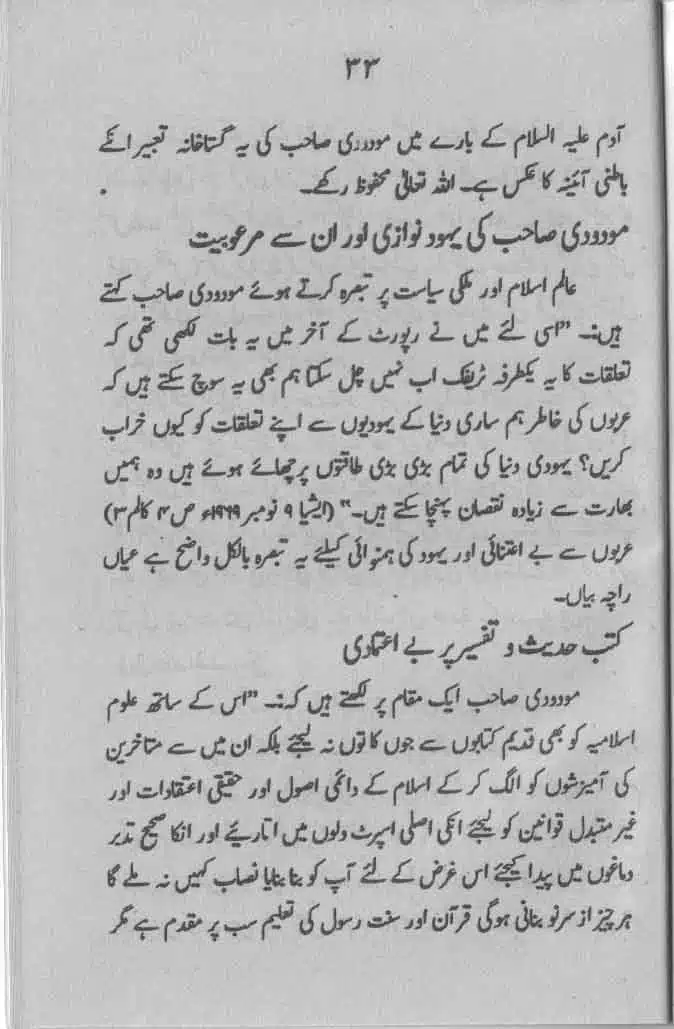 ۳۳
آدم علیہ السلام کے بارے میں مودودی صاحب کی یہ گستاخانہ تعبیر انکے
باطنی آئینہ کا عکس ہے۔ اللہ تعالیٰ محفوظ رکھے۔
مودودی صاحب کی یہود نوازی اور ان سے مرعوبیت
عالم اسلام اور ملکی سیاست پر تبصرہ کرتے ہوئے مودودی صاحب کہتے
ہیں:۔ "اسی لئے میں نے رپورٹ کے آخر میں یہ بات لکھی تھی کہ
تعلقات کا یہ یکطرفہ ٹریفک اب نہیں چل سکتا ہم بھی یہ سوچ سکتے ہیں کہ
عربوں کی خاطر ہم ساری دنیا کے یہودیوں سے اپنے تعلقات کو کیوں خراب
کریں؟ یہودی دنیا کی تمام بڑی بڑی طاقتوں پر چھائے ہوئے ہیں وہ ہمیں
بھارت سے زیادہ نقصان پہنچا سکتے ہیں۔" (ایشیا ۹ نومبر ۱۹۶۹ء ص ۴ کالم ۳)
عربوں سے بے اعتنائی اور یہود کی ہمنوائی کیلئے یہ تبصرہ بالکل واضح ہے عیاں
راچہ بیاں۔
کتب حدیث و تفسیر پر بے اعتمادی
مودودی صاحب ایک مقام پر لکھتے ہیں کہ:۔ "اس کے ساتھ علوم
اسلامیہ کو بھی قدیم کتابوں سے جوں کا توں نہ لیجئے بلکہ ان میں سے متاخرین
کی آمیزشوں کو الگ کر کے اسلام کے دائمی اصول اور حقیقی اعتقادات اور
غیر متبدل قوانین کو لیجئے انکی اصلی اسپرٹ دلوں میں اتاریئے اور انکا صحیح تدبر
دماغوں میں پیدا کیجئے اس غرض کے لئے آپ کو بنا بنایا نصاب کہیں نہ ملے گا
ہر چیز از سر نو بنانی ہوگی قرآن اور سنت رسول کی تعلیم سب پر مقدم ہے مگر